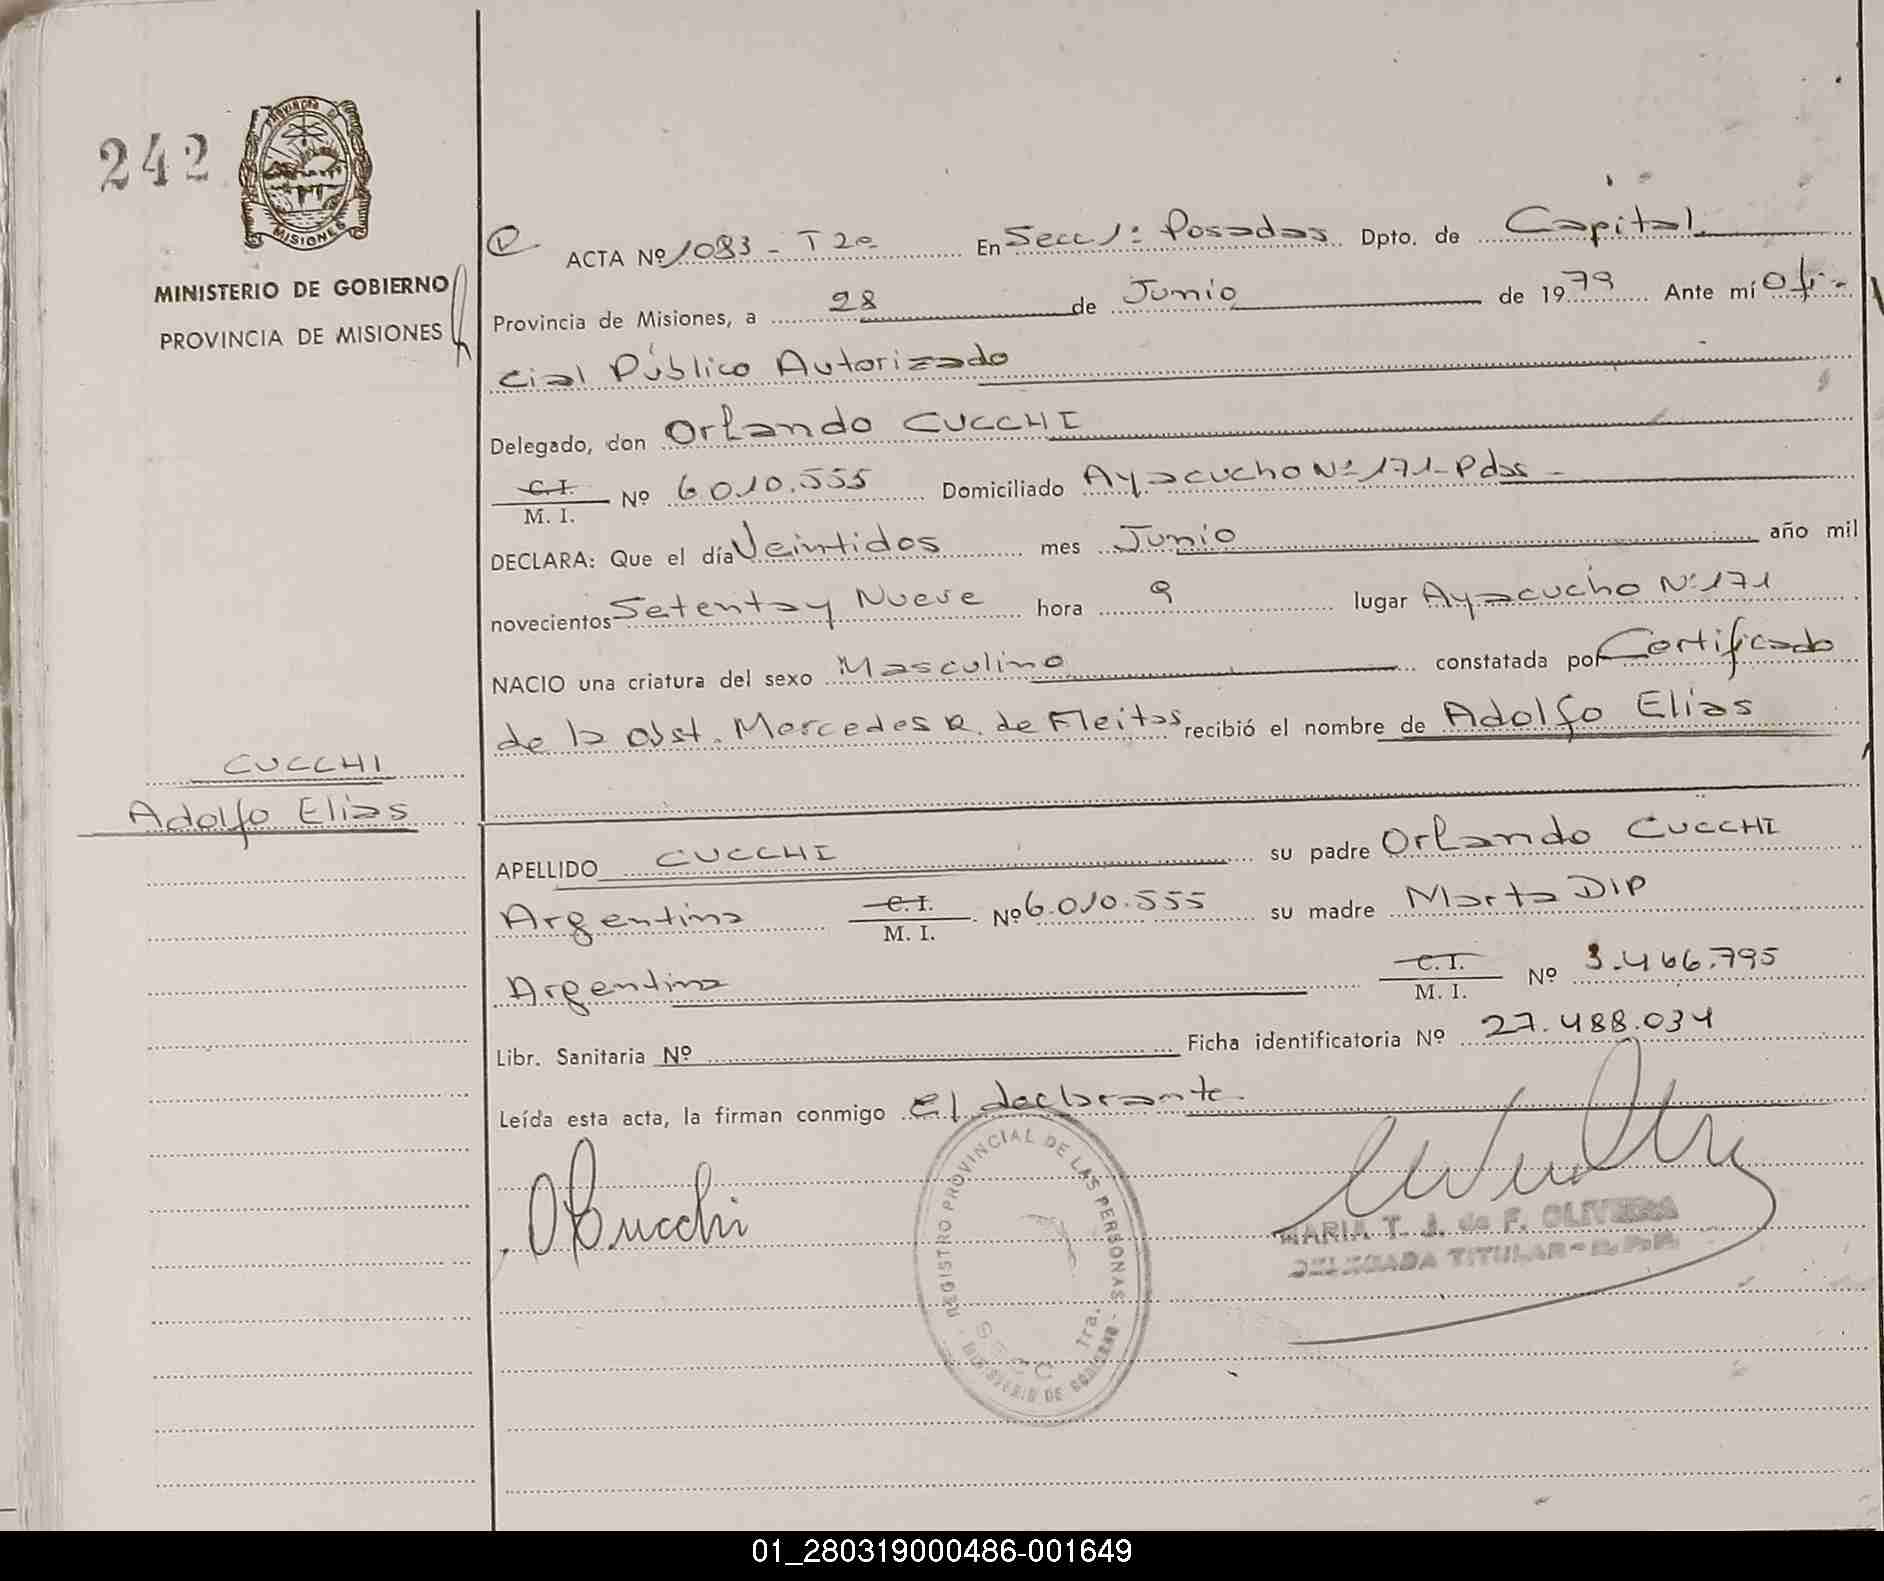 242
PROVINCIA DE
MISIONES
MINISTERIO DE GOBIERNO
PROVINCIA DE MISIONES
ACTA Nº 1083 - T 2º En Secc 1ª Posadas Dpto. de Capital
Provincia de Misiones, a 28 de Junio de 1979 Ante mí Ofi-
cial Público Autorizado
Delegado, don Orlando CUCCHI
C.I. M. I. Nº 6.010.555 Domiciliado Ayacucho Nº 171 - Pdas -
DECLARA: Que el día Veintidos mes Junio año mil
novecientos Setenta y Nueve hora 9 lugar Ayacucho Nº 171
NACIO una criatura del sexo Masculino constatada por Certificado
de la Obst. Mercedes R. de Fleitas recibió el nombre de Adolfo Elias
CUCCHI
Adolfo Elias
APELLIDO CUCCHI su padre Orlando CUCCHI
Argentino C.I. M. I. Nº 6.010.555 su madre Marta DIP
Argentina C.I. M. I. Nº 3.466.795
Libr. Sanitaria Nº Ficha identificatoria Nº 27.488.034
Leída esta acta, la firman conmigo el declarante
OCucchi
REGISTRO PROVINCIAL DE LAS PERSONAS
SECC 1ra.
MINISTERIO DE GOBIERNO
MARIA T. J. de F. OLIVEIRA
DELEGADA TITULAR - R. P. P.
01_280319000486-001649